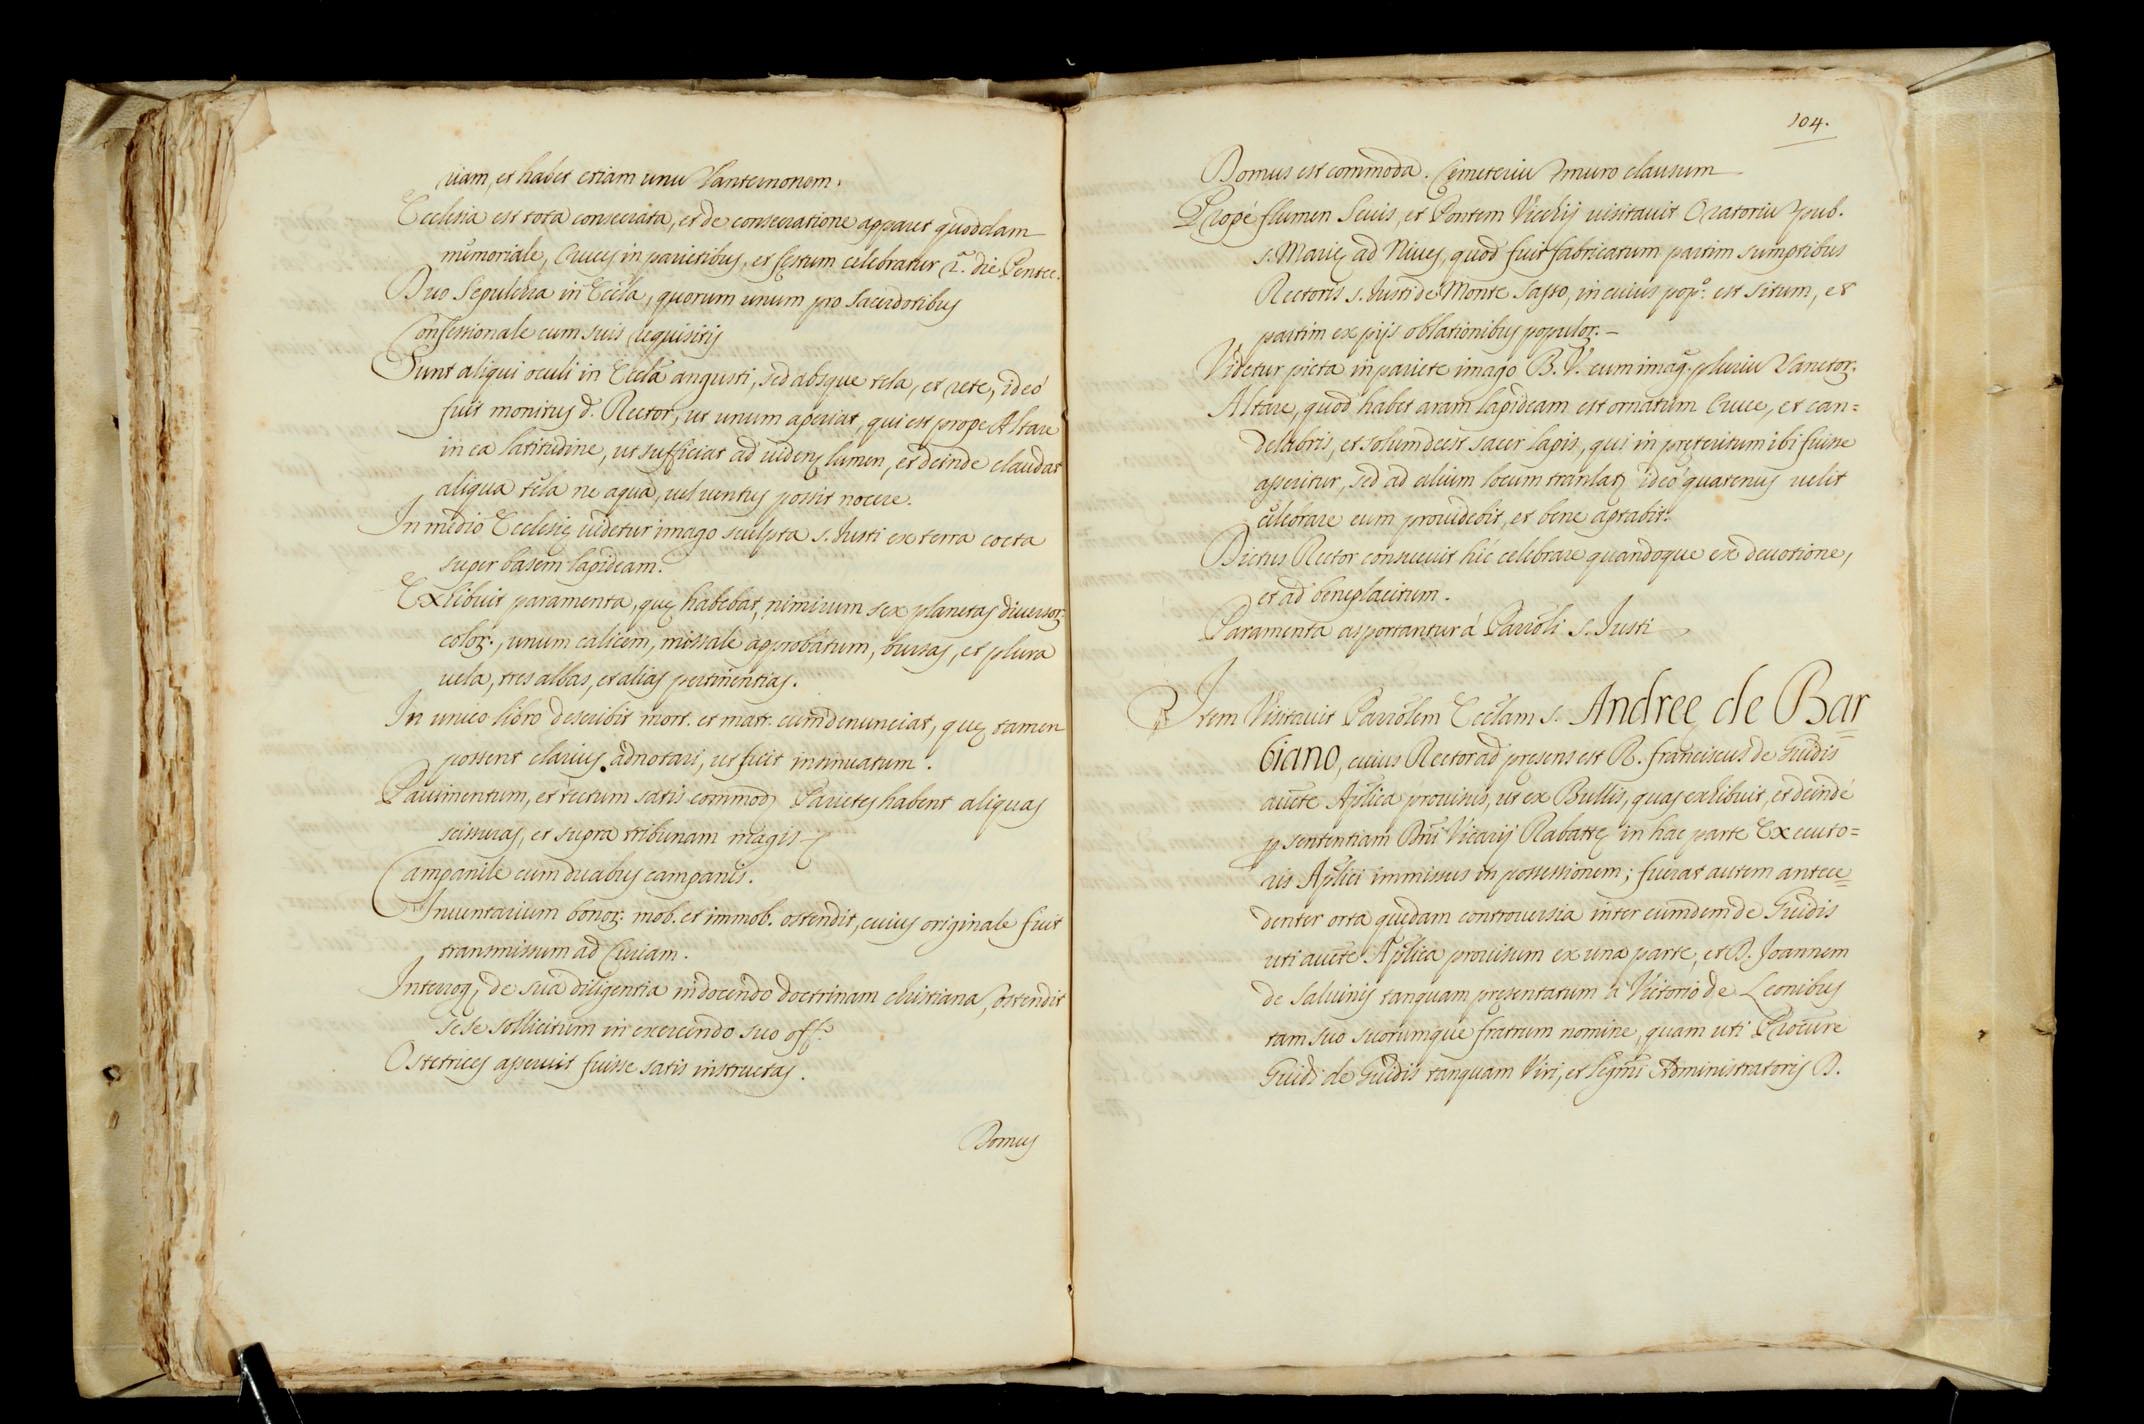 uiam, et habet etiam unũ Lanternonem.
Ecclesia est tota consecrata, et de consecratione apparet quoddam
memoriale, cruces in parietibus, et festum celebratur 2.ª die Pentec.
Duo Sepulchra in Eccľa, quorum unum pro Sacerdotibus
Confessionale cum suis requisitis
Sunt aliqui oculi in Eccľa angusti, sed absque tela, et rete, ideò
fuit monitus d. Rector, ut unum aperiat, qui est prope Altare
in ea latitudine, ut sufficiat ad uidenꝫ lumen, et deinde claudat
aliqua tela ne aqua, uel uentus possit nocere.
In medio Ecclesię uidetur imago sculpta s. Justi ex terra cocta
super basem lapideam.
Exhibuit paramenta, quę habebat, nimirum sex planetas diuersoꝝ
coloꝝ, unum calicem, missale approbatum, bursas, et plura
uela, tres albas, et alias pertinentias.
In unico libro describit mort. et matr. cum denunciat., quę tamen
possent clarius adnotari, ut fuit intinuatum.
Pauimentum, et tectum satis commodꝫ Parietes habent aliquas
scissuras, et supra tribunam magis
Campanile cum duabus campanis.
Inuentarium bonoꝝ mob. et immob. ostendit, cuius originale fuit
transmissum ad Curiam.
Interrog. de sua diligentia in docendo doctrinam christianã, ostendit
sese sollicitum in exercendo suo off.º
Ostetrices asseruit fuisse satis instructas.
Domus
104.
Domus est commoda. Cęmeteriũ muro clausum
Propè flumen Seuis, et Pontem Vicchij uisitauit Oratoriũ pub.
s. Marię ad Niues, quod fuit fabricatum partim sumptibus
Rectoris s. Justi de Monte Sasso, in cuius pop.º est situm, et
partim ex pijs oblationibus populoꝝ. –
Videtur picta in pariete imago B. V. cum imag. pluriũ Sanctoꝝ.
Altare, quod habet aram lapideam est ornatum Cruce, et can=
delabris, et solum deest sacer lapis, qui in pręteritum ibi fuisse
asseritur, sed ad alium locum translatꝫ ideò quatenus uelit
celebrare eum prouidebit, et bene aptabit.
Dictus Rector consueuit hic celebrare quandoque ex deuotione,
et ad beneplacitum.
Paramenta asportantur à Parroľi s. Justi
Item Visitauit Parroľem Eccľam s. Andreę de Bar
biano, cuius Rector ad pręsens est R. Franciscus de Guidis
aucte Apľica prouisus, ut ex Bullis, quas exhibuit, et deindè
ꝑ sententiam Dñi Vicarij Rabattę in hac parte Executo=
ris Apľici immissus in possessionem; fuerat autem antece=
denter orta quędam controuersia inter eumdem de Guidis
uti aucte Apľica prouisum ex una parte, et D. Joannem
de Saluinis tanquam pręsentatum à Victorio de Leonibus
tam suo suorumque fratrum nomine, quam uti Procure
Guidi de Guidis tanquam Viri, et legmi Administratoris D.